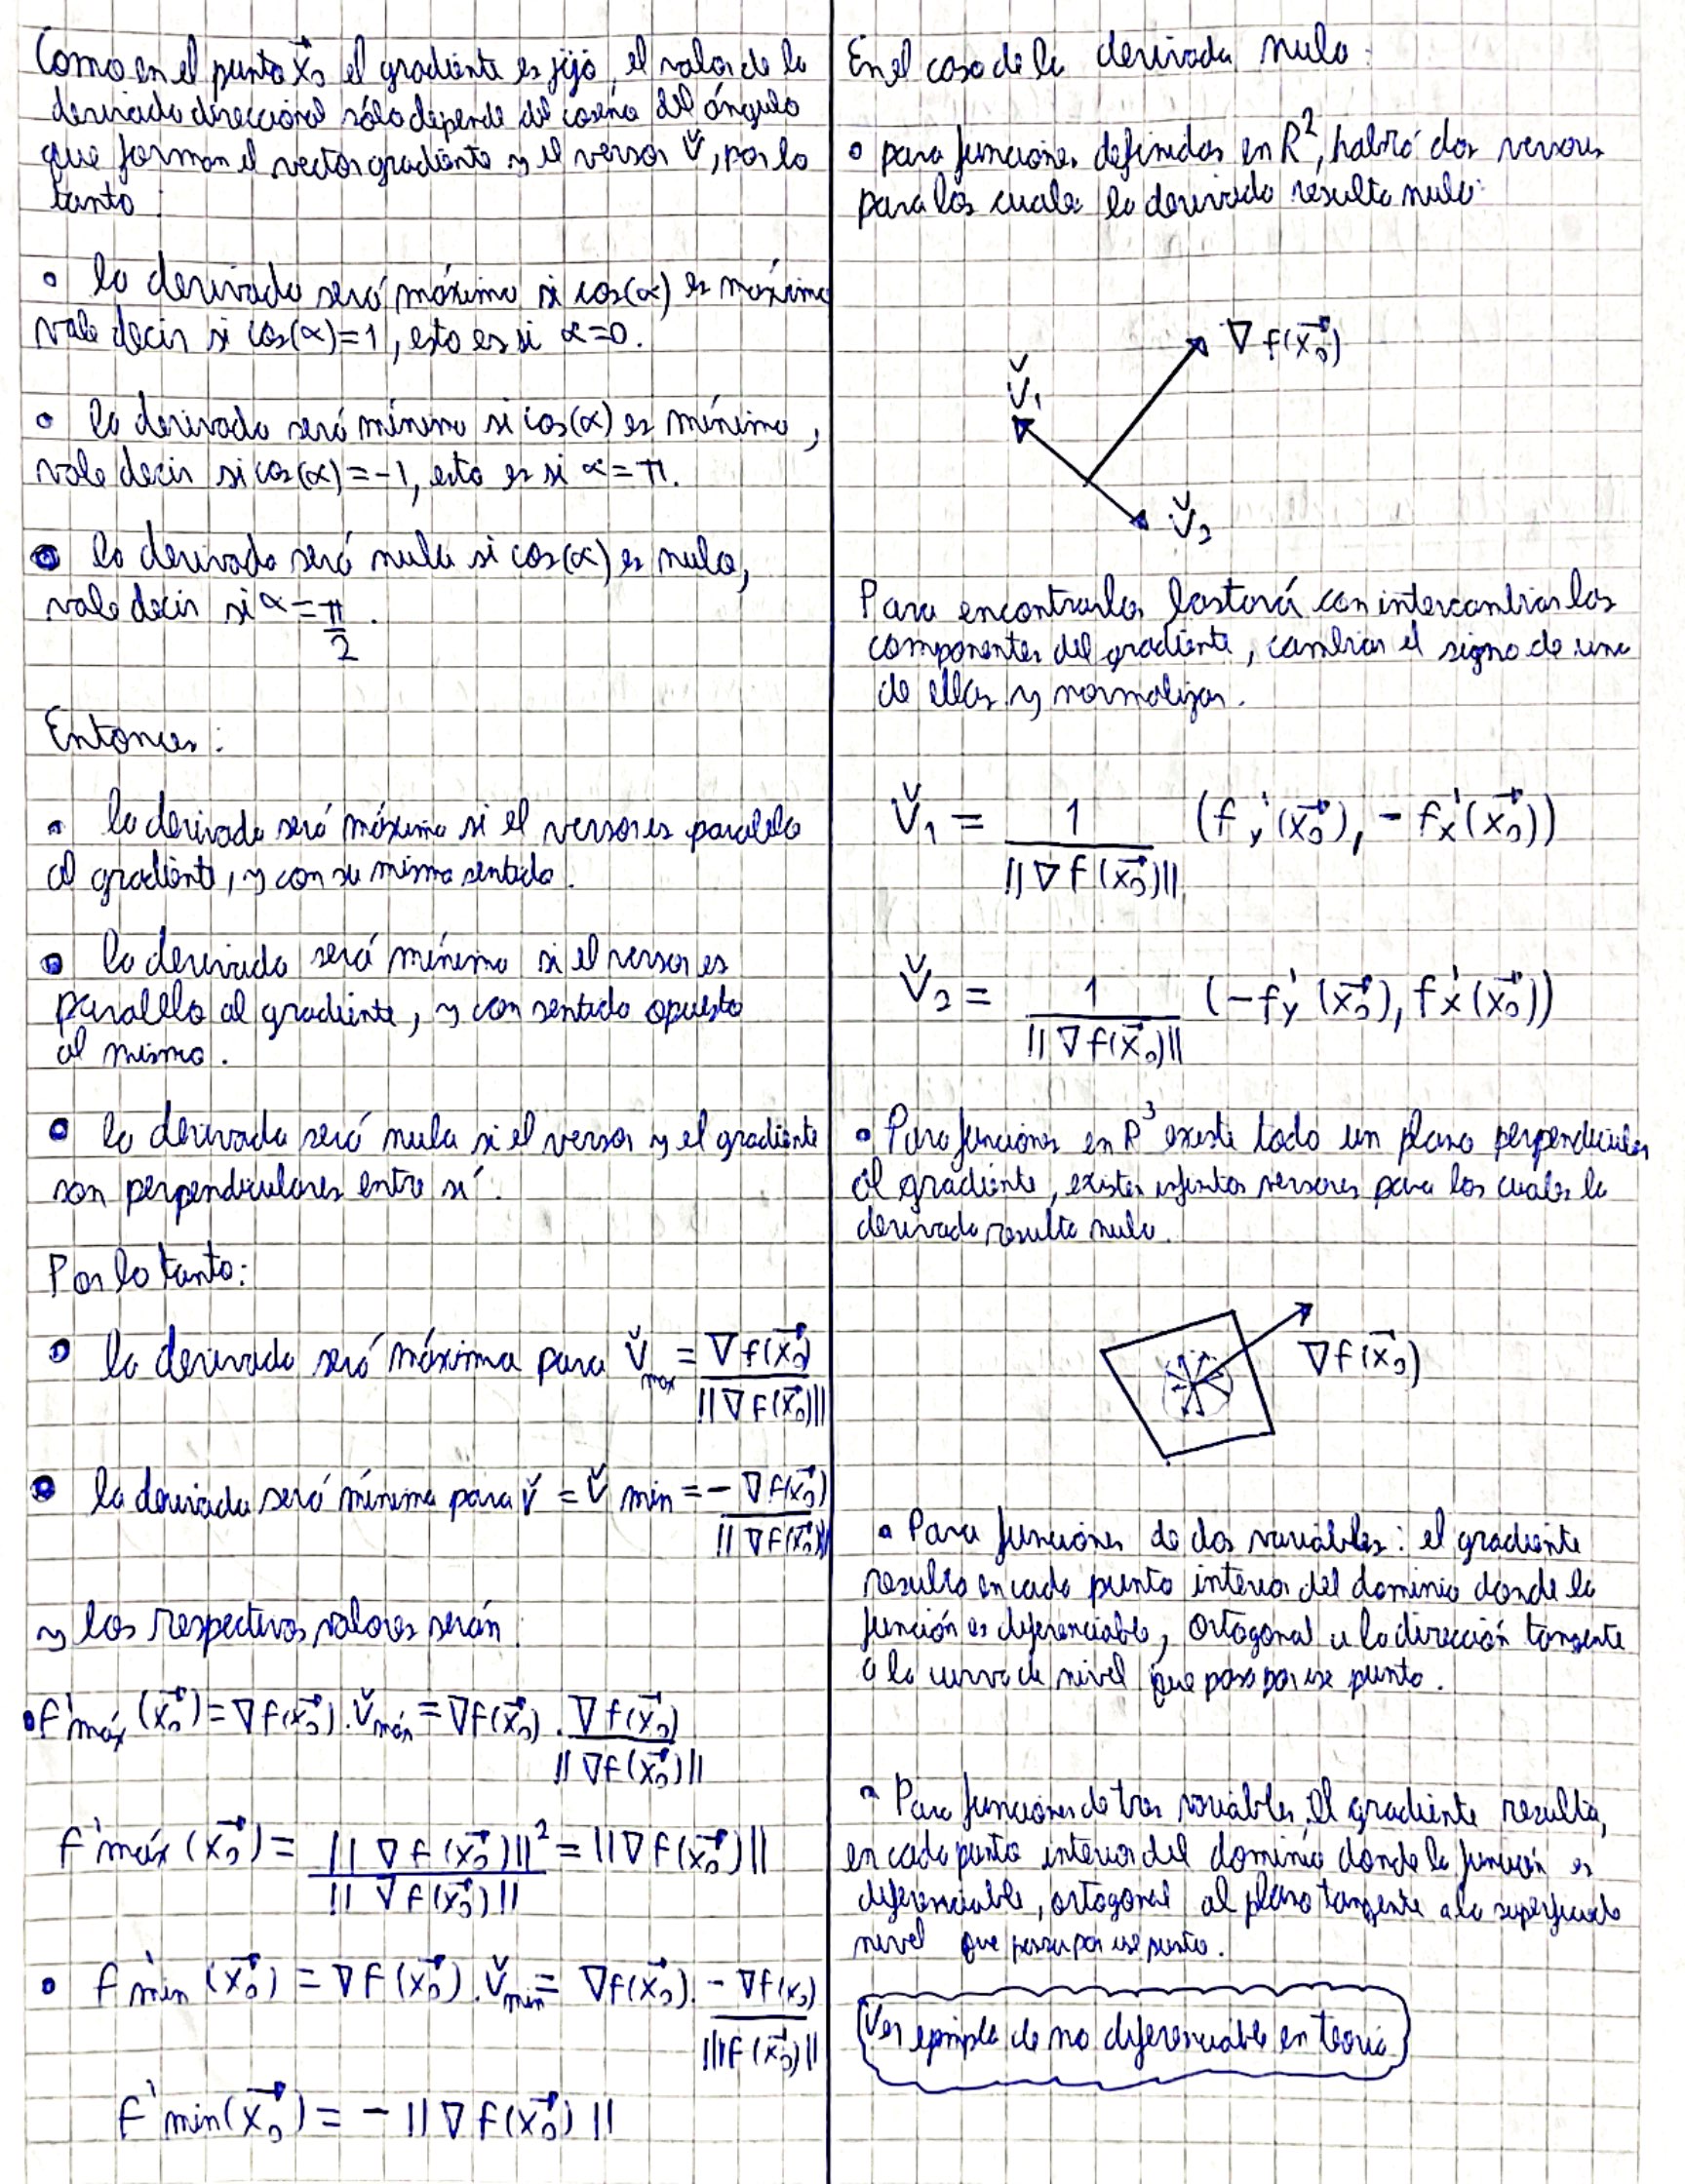 Como en el punto x⃗₀ el gradiente es fijo, el valor de la
derivada direccional sólo depende del coseno del ángulo
que forman el vector gradiente y el versor v̌, por lo
tanto:
• la derivada será máxima si cos(α) es máximo
vale decir si cos(α)=1, esto es si α=0.
• la derivada será mínima si cos(α) es mínimo,
vale decir si cos(α)=-1, esto es si α=π.
• la derivada será nula si cos(α) es nulo,
vale decir si α=π/2.
Entonces:
• la derivada será máxima si el versor es paralelo
al gradiente, y con su mismo sentido.
• la derivada será mínima si el versor es
paralelo al gradiente, y con sentido opuesto
al mismo.
• la derivada será nula si el versor y el gradiente
son perpendiculares entre sí.
Por lo tanto:
• la derivada será máxima para v̌ max = ∇f(x⃗₀) / ||∇f(x⃗₀)||
• la derivada será mínima para v̌ = v̌ min = - ∇f(x⃗₀) / ||∇f(x⃗₀)||
y los respectivos valores serán:
• f'máx (x⃗₀) = ∇f(x⃗₀) . v̌máx = ∇f(x⃗₀) . ∇f(x⃗₀) / ||∇f(x⃗₀)||
f'máx (x⃗₀) = ||∇f(x⃗₀)||² / ||∇f(x⃗₀)|| = ||∇f(x⃗₀)||
• f'min (x⃗₀) = ∇f(x⃗₀) . v̌min = ∇f(x⃗₀) . - ∇f(x₀) / ||∇f(x⃗₀)||
f'min(x⃗₀) = - ||∇f(x⃗₀)||
En el caso de la derivada nula:
• para funciones definidas en R², habrá dos versores
para los cuales la derivada resulta nula:
∇f(x⃗₀)
v̌₁
v̌₂
Para encontrarlos bastará con intercambiar las
componentes del gradiente, cambiar el signo de una
de ellas y normalizar.
v̌₁ = 1 / ||∇f(x⃗₀)|| (f'y(x⃗₀), - f'x(x⃗₀))
v̌₂ = 1 / ||∇f(x⃗₀)|| (-f'y(x⃗₀), f'x(x⃗₀))
• Para funciones en R³ existe todo un plano perpendicular
al gradiente, existen infinitos versores para los cuales la
derivada resulta nula.
∇f(x⃗₀)
• Para funciones de dos variables: el gradiente
resulta en cada punto interior del dominio donde la
función es diferenciable, ortogonal a la dirección tangente
a la curva de nivel que pasa por ese punto.
• Para funciones de tres variables, el gradiente resulta,
en cada punto interior del dominio donde la función es
diferenciable, ortogonal al plano tangente a la superficie de
nivel que pasa por ese punto.
Ver ejemplo de no diferenciable en teoría